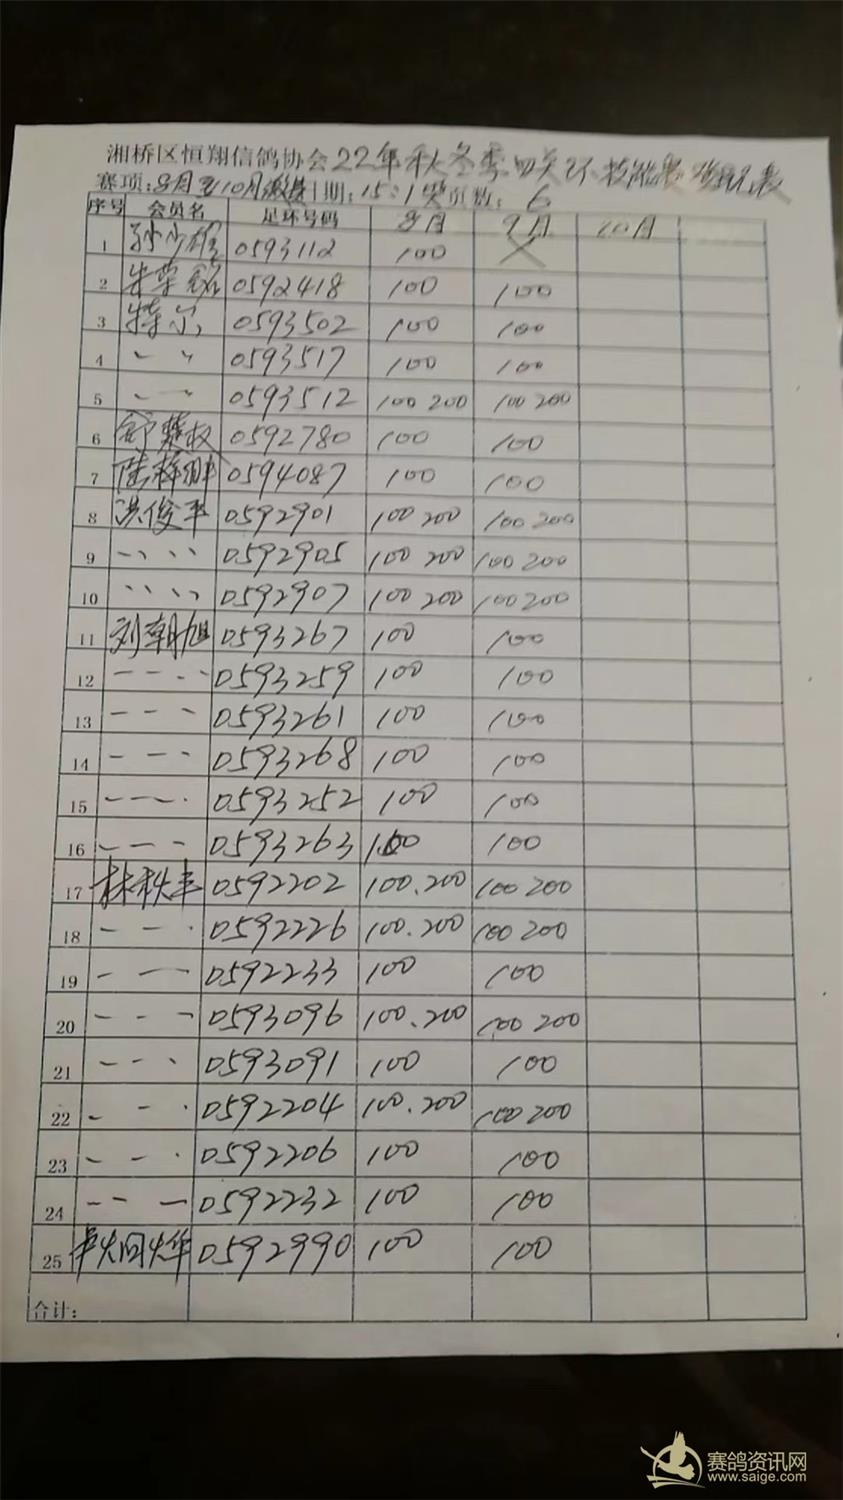 湘桥区恒翔信鸽协会22年秋冬季四关环
赛项:8月至10月 日期:15:1 页数:6
序号 会员名 足环号码 8月 9月 10月
1 孙少雄 0593112 100 X
2 朱荣铭 0592418 100 100
3 0593502 100 100
4 〃 0593517 100 100
5 〃 0593512 100 200 100 200
6 0592780 100 100
7 0594087 100 100
8 洪俊平 0592901 100 200 100 200
9 〃 0592905 100 200 100 200
10 〃 0592907 100 200 100 200
11 刘朝旭 0593267 100 100
12 ---- 0593259 100 100
13 --- 0593261 100 100
14 --- 0593268 100 100
15 --- 0593252 100 100
16 --- 0593263 100 100
17 林秋丰 0592202 100.200 100 200
18 --- 0592226 100.200 100 200
19 --- 0592233 100 100
20 --- 0593096 100.200 100 200
21 --- 0593091 100 100
22 --- 0592204 100.200 100 200
23 --- 0592206 100 100
24 --- 0592232 100 100
25 0592990 100 100
合计:
赛鸽资讯网
www.saige.com